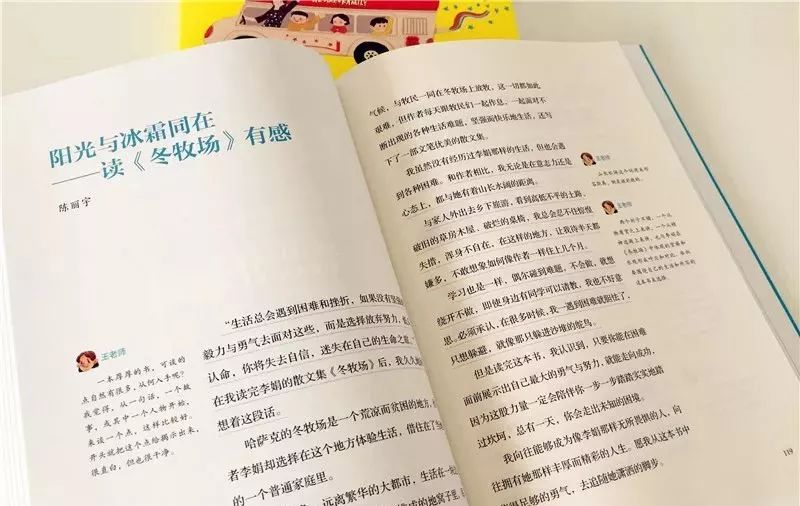 阳光与冰霜同在
——读《冬牧场》有感
陈丽宇
“生活总会遇到困难和挫折，如果没有坚强的
毅力与勇气去面对这些，而是选择放弃努力，
认命，你将失去自信，迷失在自己的生命之
在我读完李娟的散文集《冬牧场》后，我久久
想着这段话。
哈萨克的冬牧场是一个荒凉而贫困的地方，
者李娟却选择在这个地方体验生活，借住在了当
的一个普通家庭里。
远离繁华的大都市，生活在一
成的地窝子里，
王老师
一本厚厚的书，可谈的
点自然有很多，从何入手呢？
我觉得，从一句话，一个故
事，或其中一个人物开始，
来谈一个点，这样比较好。
开头就把这个点给揭示出来，
很直白，但也很干净。
气候，与牧民一同在冬牧场上放牧，这一切都如此
艰难，但作者每天跟牧民们一起作息，一起面对不
断出现的各种生活难题，坚强而快乐地生活，还写
下了一部文笔优美的散文集。
我虽然没有经历过李娟那样的生活，但也会遇
到各种困难。和作者相比，我无论是在意志力还是
心态上，都与她有着山长水阔的距离。
与家人外出去乡下旅游，看到高低不平的土路，
破旧的草房木屋、破烂的桌椅，我总会忍不住惊慌
失措，浑身不自在，在这样的地方，让我待半天都
嫌多，不敢想象如何像作者一样住上几个月。
学习也是一样，偶尔碰到难题，不会做，就想
绕开不做，即使身边有同学可以请教，我也不好意
思。必须承认，在很多时候，我一遇到困难就胆怯了，
只想躲避，就像那只躲进沙堆的鸵鸟。
但是读完这本书，我认识到，只要你能在困难
面前展示出自己最大的勇气与努力，就能走向成功，
因为这股力量一定会陪伴你一步一步踏踏实实地踏
过坎坷，总有一天，你会走出未知的困境。
我向往能够成为像李娟那样无所畏惧的人，向
往拥有她那样丰厚而精彩的人生。愿我从这本书中
足够的勇气，去追随她潇洒的脚步。
王老师
王老师
119